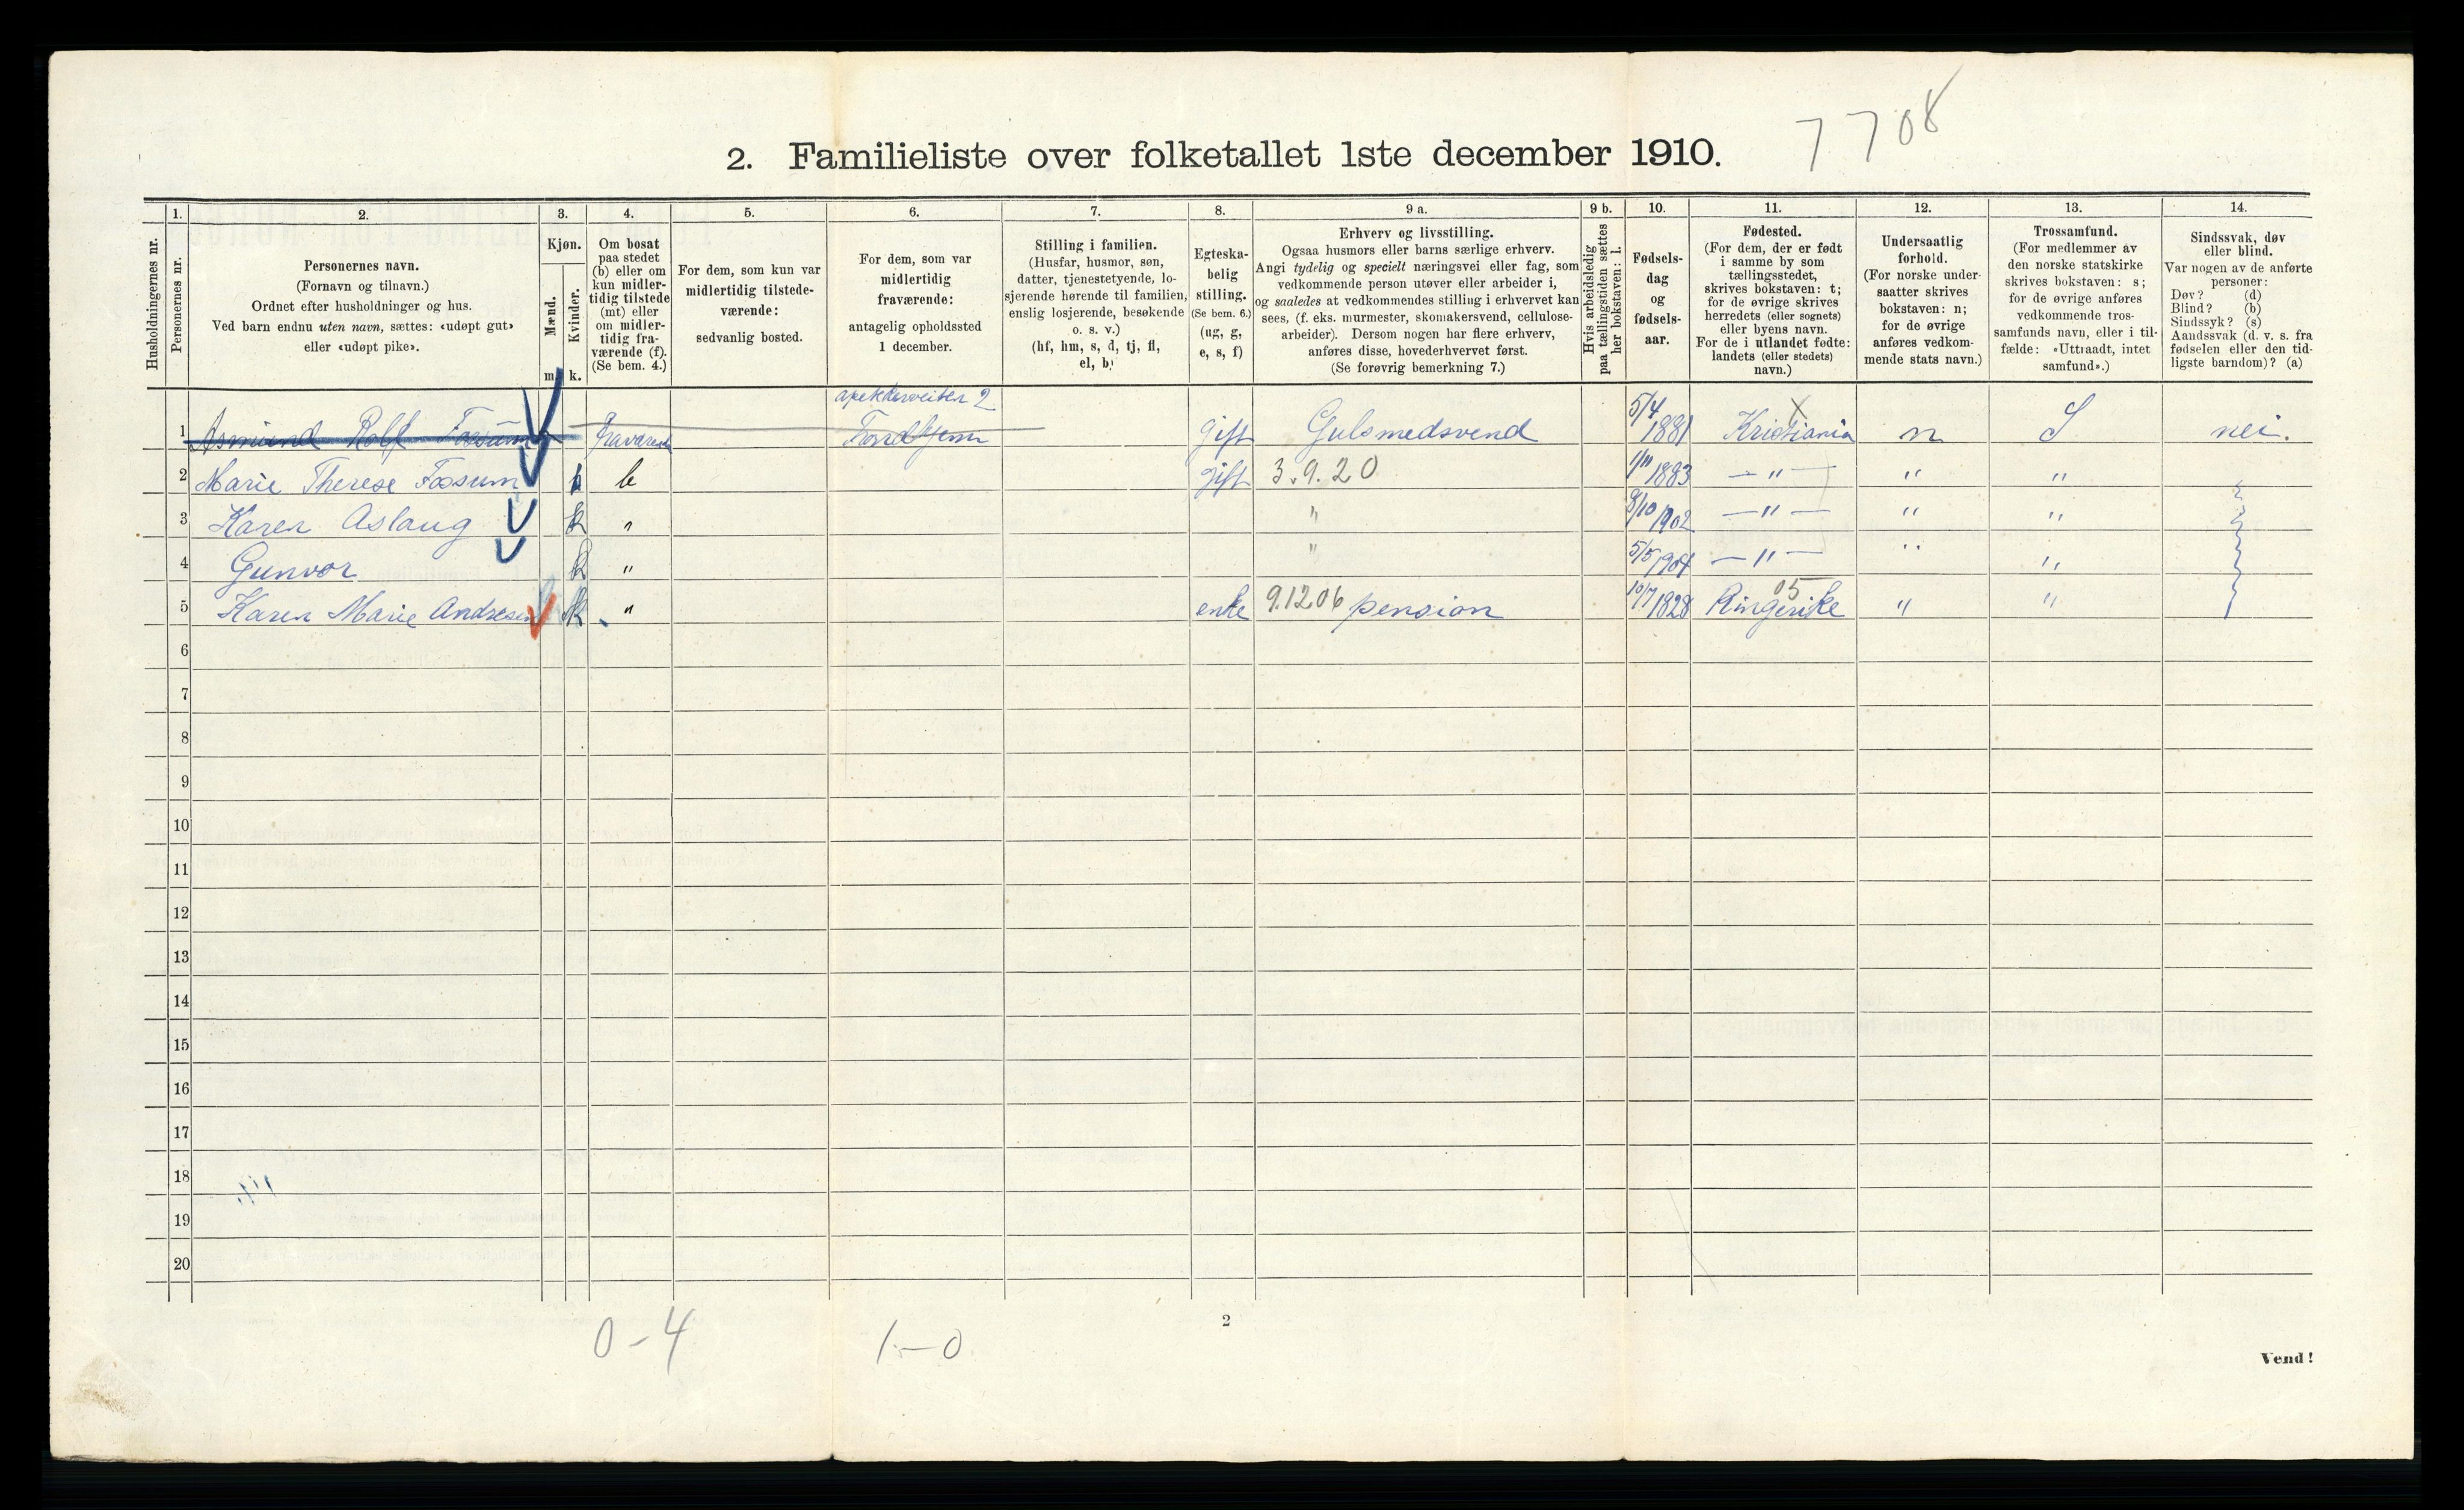 7708
2. Familieliste over folketallet 1ste december 1910.
Husholdningernes nr.
1.
Personernes nr.
2.
Personernes navn.
(Fornavn og tilnavn.)
Ordnet efter husholdninger og hus.
Ved barn endnu uten navn, sættes: «udøpt gut»
eller «udøpt pike».
3.
Kjøn.
Mænd.
Kvinder.
m. k.
4.
Om bosat
paa stedet
(b) eller om
kun midler-
tidig tilstede
(mt) eller
om midler-
tidig fra-
værende (f).
(Se bem. 4.)
5.
For dem, som kun var
midlertidig tilstede-
værende:
sedvanlig bosted.
6.
For dem, som var
midlertidig
fraværende:
antagelig opholdssted
1 december.
7.
Stilling i familien.
(Husfar, husmor, søn,
datter, tjenestetyende, lo-
sjerende hørende til familien,
enslig losjerende, besøkende
o. s. v.)
(hf, hm, s, d, tj, fl,
el, b)
8.
Egteska-
belig
stilling.
(Se bem. 6.)
(ug, g,
e, s, f)
9 a.
Erhverv og livsstilling.
Ogsaa husmors eller barns særlige erhverv.
Angi tydelig og specielt næringsvei eller fag, som
vedkommende person utøver eller arbeider i,
og saaledes at vedkommendes stilling i erhvervet kan
sees, (f. eks. murmester, skomakersvend, cellulose-
arbeider). Dersom nogen har flere erhverv,
anføres disse, hovederhvervet først.
(Se forøvrig bemerkning 7.)
9 b.
Hvis arbeidsledig
paa tællingstiden sættes
her bokstaven: l.
10.
Fødsels-
dag
og
fødsels-
aar.
11.
Fødested.
(For dem, der er født
i samme by som
tællingsstedet,
skrives bokstaven: t;
for de øvrige skrives
herredets (eller sognets)
eller byens navn.
For de i utlandet fødte:
landets (eller stedets)
navn.)
12.
Undersaatlig
forhold.
(For norske under-
saatter skrives
bokstaven: n;
for de øvrige
anføres vedkom-
mende stats navn.)
13.
Trossamfund.
(For medlemmer av
den norske statskirke
skrives bokstaven: s;
for de øvrige anføres
vedkommende tros-
samfunds navn, eller i til-
fælde: «Uttraadt, intet
samfund».)
14.
Sindssvak, døv
eller blind.
Var nogen av de anførte
personer:
Døv? (d)
Blind? (b)
Sindssyk? (s)
Aandssvak (d. v. s. fra
fødselen eller den tid-
ligste barndom)? (a)
1 Asmund Rolf Fossum Gift Gulsmedsvend 5/4 1881 Kristiania X n S nei.
2 Marie Therese Fossum k b gift 3.9.20 1/11 1883 — " — " "
3 Karen Aslaug k " " 8/10 1902 — " — " "
4 Gunvor k " " 5/5 1904 — " — " "
5 Karen Marie Andresen k " enke 9.12.06 pension 10/7 1828 Ringerike 05 " "
6
7
8
9
10
11
12
13
14
15
16
17
18
19
20
0-4
1-0
2
Vend!